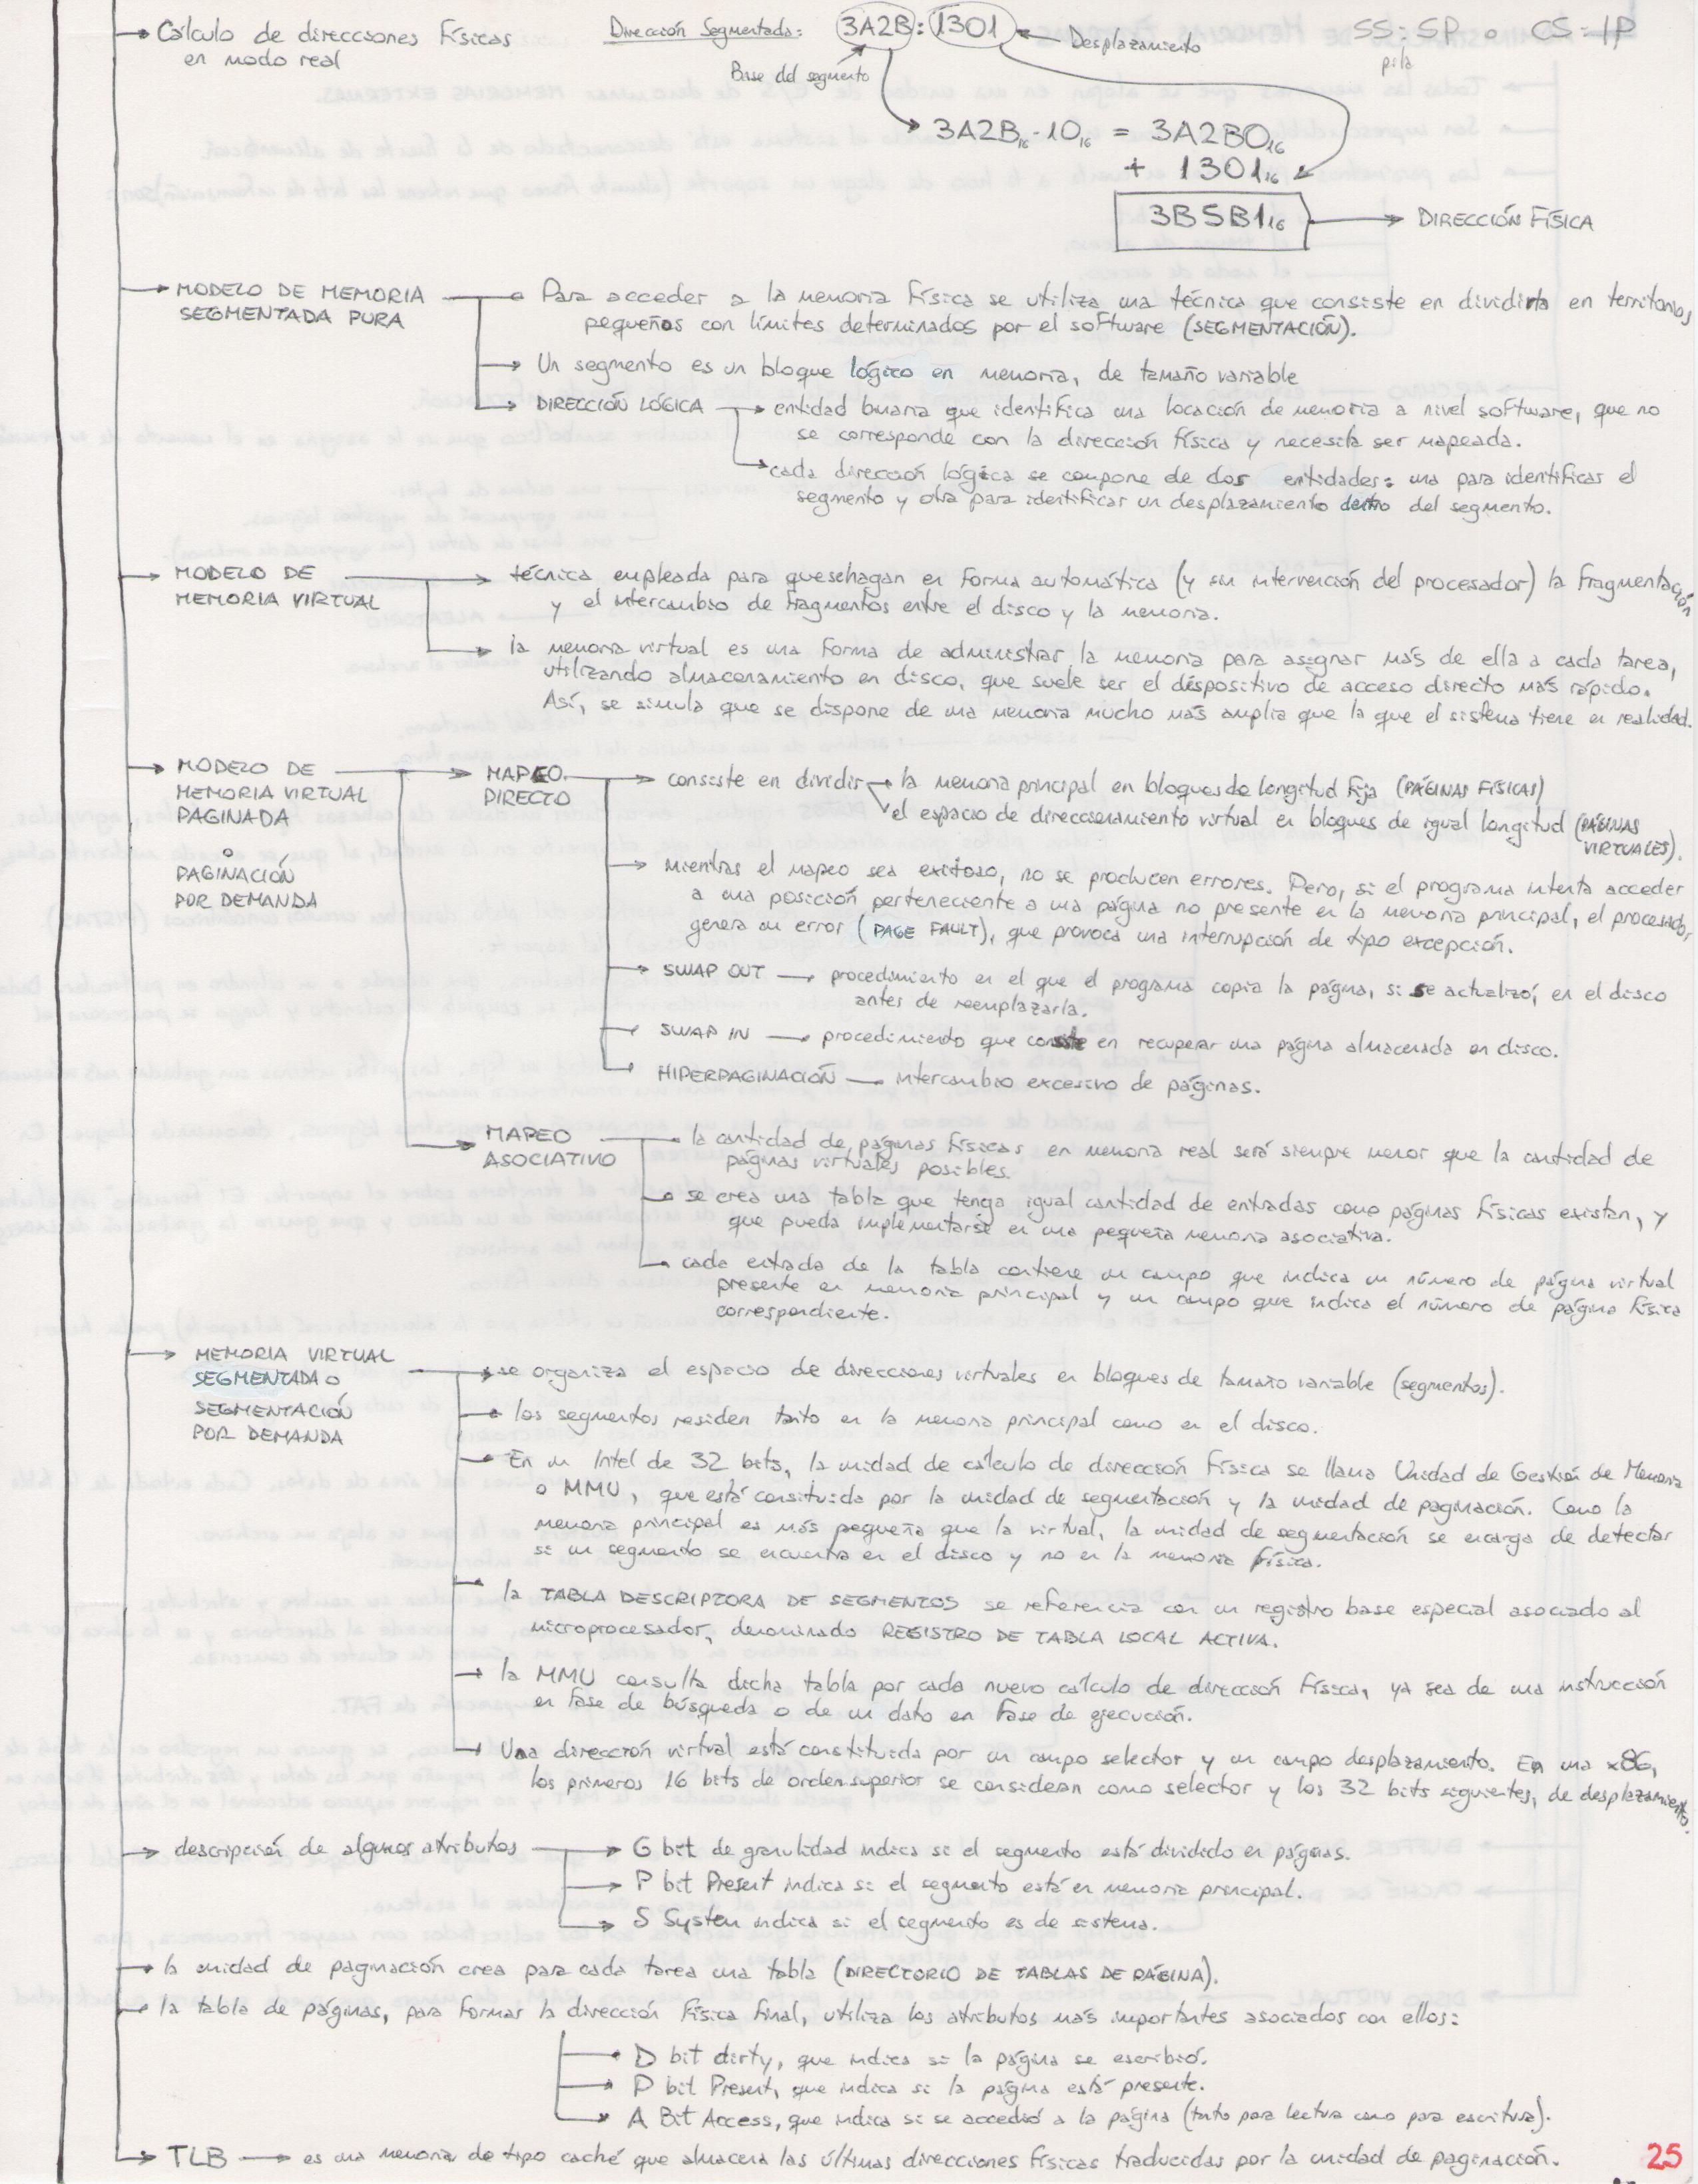 Cálculo de direcciones físicas
en modo real
Dirección Segmentada: 3A2B:1301
Desplazamiento
Base del segmento
SS:SP o CS:IP
pila
3A2B₁₆·10₁₆ = 3A2B0₁₆
+ 1301₁₆
3B5B1₁₆
DIRECCIÓN FÍSICA
MODELO DE MEMORIA
SEGMENTADA PURA
Para acceder a la memoria física se utiliza una técnica que consiste en dividirla en territorios
pequeños con límites determinados por el software (SEGMENTACIÓN).
Un segmento es un bloque lógico en memoria, de tamaño variable
DIRECCIÓN LÓGICA
entidad binaria que identifica una locación de memoria a nivel software, que no
se corresponde con la dirección física y necesita ser mapeada.
cada dirección lógica se compone de dos entidades: una para identificar el
segmento y otra para identificar un desplazamiento dentro del segmento.
MODELO DE
MEMORIA VIRTUAL
técnica empleada para que se hagan en forma automática (y sin intervención del procesador) la fragmentación
y el intercambio de fragmentos entre el disco y la memoria.
la memoria virtual es una forma de administrar la memoria para asignar más de ella a cada tarea,
utilizando almacenamiento en disco, que suele ser el dispositivo de acceso directo más rápido.
Así, se simula que se dispone de una memoria mucho más amplia que la que el sistema tiene en realidad.
MODELO DE
MEMORIA VIRTUAL
PAGINADA
o
PAGINACIÓN
POR DEMANDA
MAPEO
DIRECTO
consiste en dividir
la memoria principal en bloques de longitud fija (PÁGINAS FÍSICAS)
el espacio de direccionamiento virtual en bloques de igual longitud (PÁGINAS
VIRTUALES).
Mientras el mapeo sea exitoso, no se producen errores. Pero, si el programa intenta acceder
a una posición perteneciente a una página no presente en la memoria principal, el procesador
genera un error (PAGE FAULT), que provoca una interrupción de tipo excepción.
SWAP OUT
procedimiento en el que el programa copia la página, si se actualizó, en el disco
antes de reemplazarla.
SWAP IN
procedimiento que consiste en recuperar una página almacenada en disco.
HIPERPAGINACIÓN
intercambio excesivo de páginas.
MAPEO
ASOCIATIVO
la cantidad de páginas físicas en memoria real será siempre menor que la cantidad de
páginas virtuales posibles.
se crea una tabla que tenga igual cantidad de entradas como páginas físicas existan, y
que pueda implementarse en una pequeña memoria asociativa.
cada entrada de la tabla contiene un campo que indica un número de página virtual
presente en memoria principal y un campo que indica el número de página física
correspondiente.
MEMORIA VIRTUAL
SEGMENTADA o
SEGMENTACIÓN
POR DEMANDA
se organiza el espacio de direcciones virtuales en bloques de tamaño variable (segmentos).
los segmentos residen tanto en la memoria principal como en el disco.
En un Intel de 32 bits, la unidad de cálculo de dirección física se llama Unidad de Gestión de Memoria
o MMU, que está consituida por la unidad de segmentación y la unidad de paginación. Como la
memoria principal es más pequeña que la virtual, la unidad de segmentación se encarga de detectar
si un segmento se encuentra en el disco y no en la memoria física.
la TABLA DESCRIPTORA DE SEGMENTOS se referencia con un registro base especial asociado al
microprocesador, denominado REGISTRO DE TABLA LOCAL ACTIVA.
la MMU consulta dicha tabla por cada nuevo cálculo de dirección física, ya sea de una instrucción
en fase de búsqueda o de un dato en fase de ejecución.
Una dirección virtual está constituida por un campo selector y un campo desplazamiento. En una x86,
los primeros 16 bits de orden superior se consideran como selector y los 32 bits siguientes, de desplazamiento.
descripción de algunos atributos
G bit de granulidad indica si el segmento está dividido en páginas.
P bit Present indica si el segmento está en memoria principal.
S System indica si el segmento es de sistema.
la unidad de paginación crea para cada tarea una tabla (DIRECTORIO DE TABLAS DE PÁGINA).
la tabla de páginas, para formar la dirección física final, utiliza los atributos más importantes asociados con ellos:
D bit dirty, que indica si la página se escribió.
P bit Present, que indica si la página está presente.
A Bit Access, que indica si se accedió a la página (tanto para lectura como para escritura).
TLB
es una memoria de tipo caché que almacena las últimas direcciones físicas traducidas por la unidad de paginación.
25